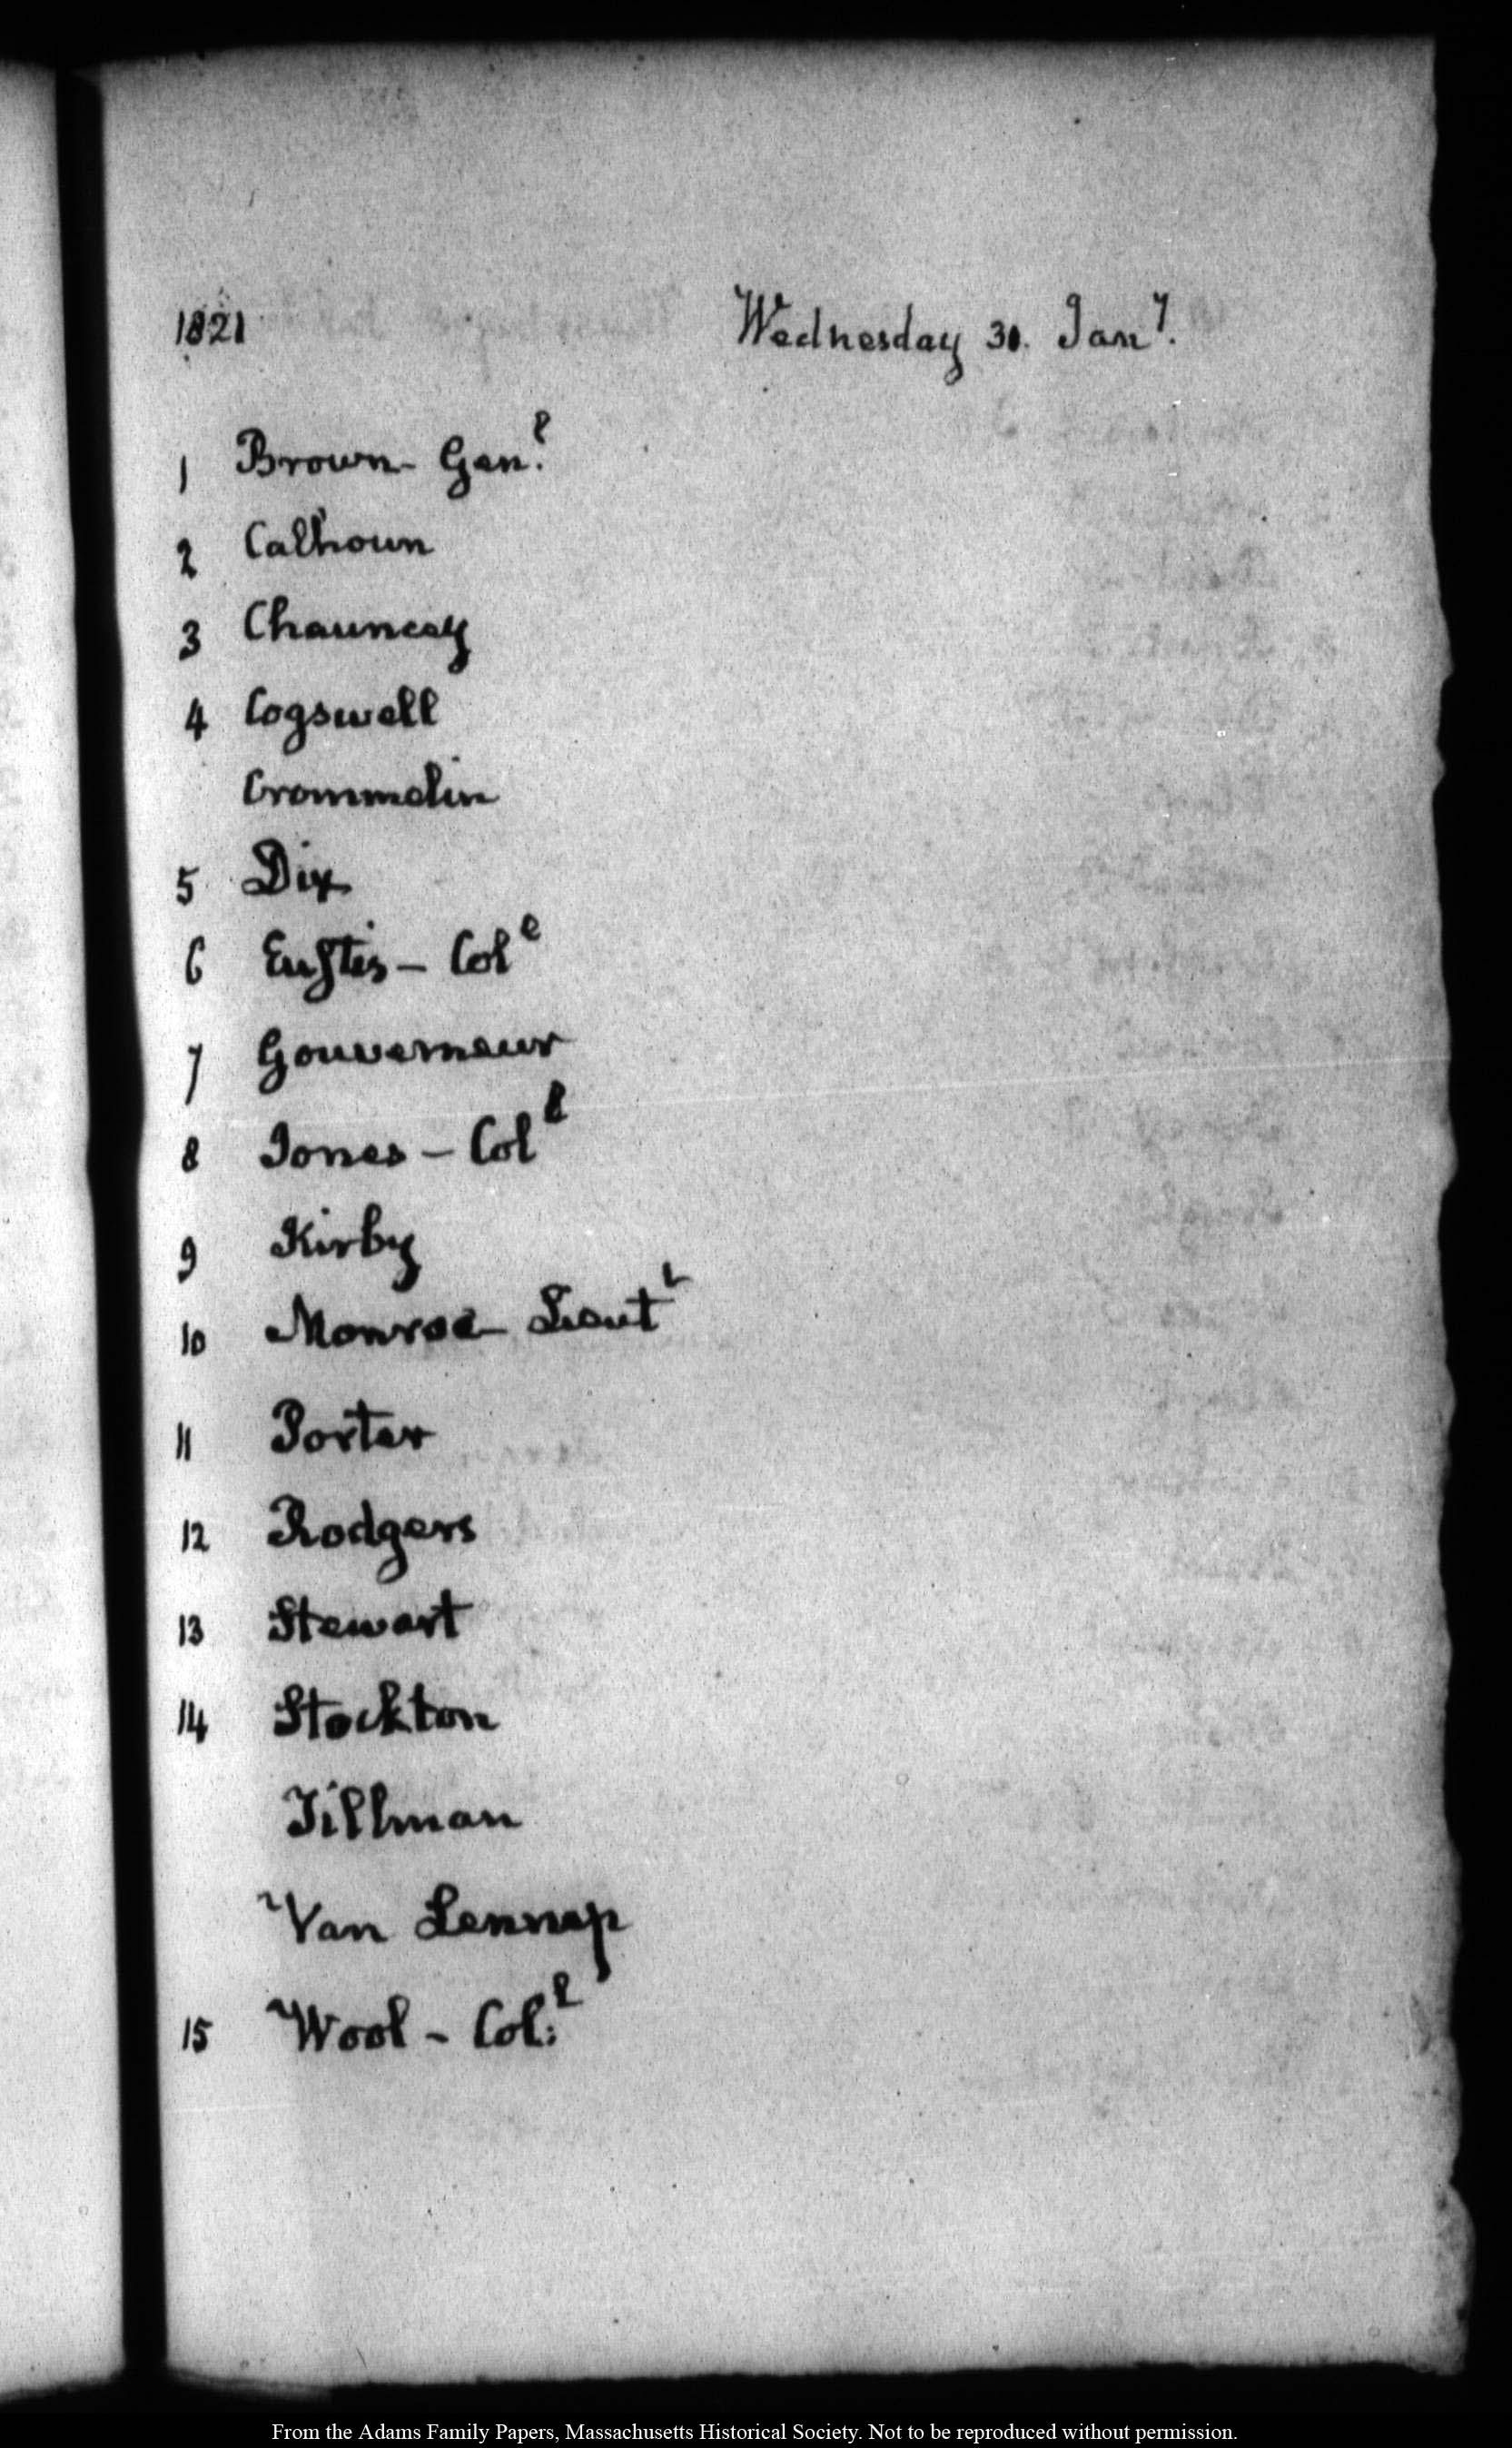 1821 Wednesday 30. Jany.
1 Brown- Genl.
2 Calhoun
3 Chauncey
4 Cogswell
Crommelin
5 Dix
6 Eustis - Coll
7 Gouverneur
8 Jones - Coll
9 Kirby
10 Monroe - Lieutt
11 Porter
12 Rodgers
13 Stewart
14 Stockton
Tillman
Van Lennep
15 Wool - Col:l
From the Adams Family Papers, Massachusetts Historical Society. Not to be reproduced without permission.